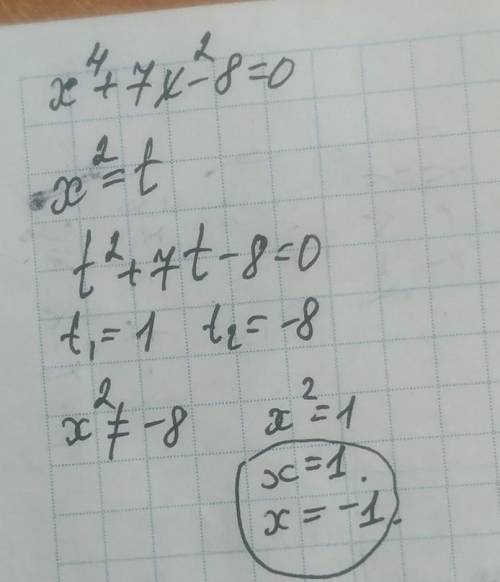 x⁴+7x²-8=0
x²=t
t²+7t-8=0
t₁=1 t₂=-8
x²≠-8 x²=1
x=1.
x=-1.